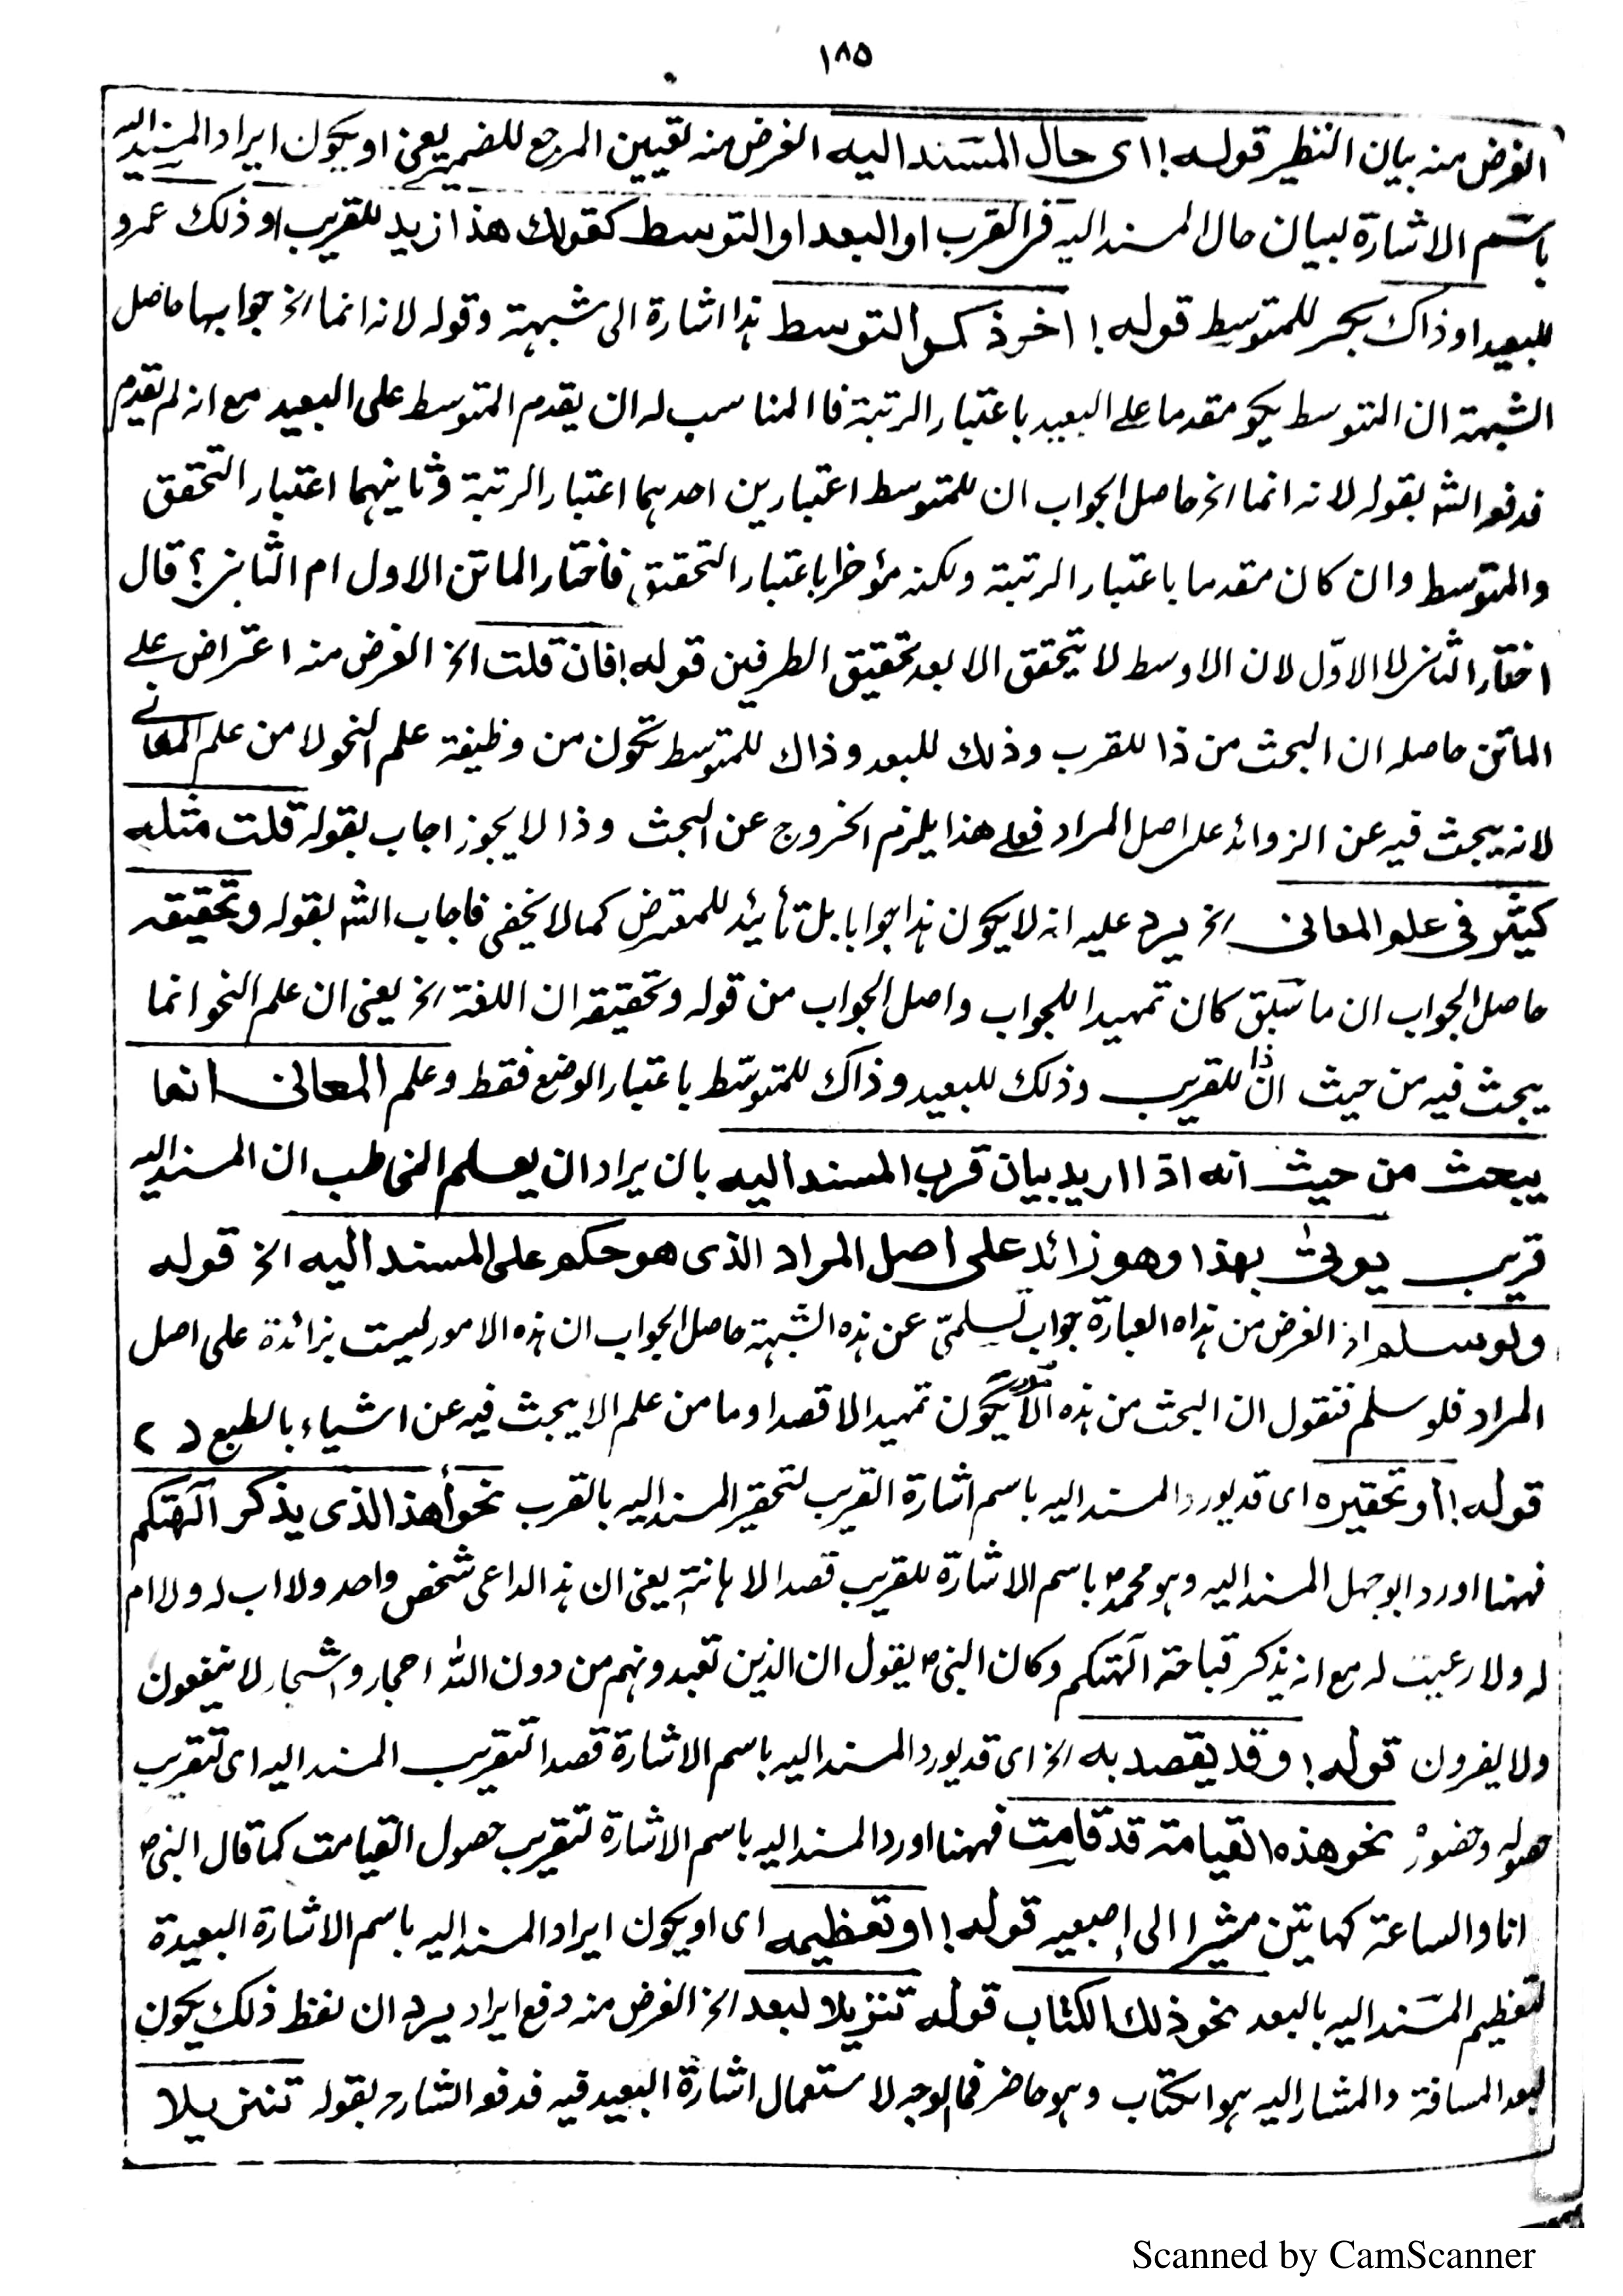 ١٨٥
الغرض منه بيان النظير قوله ! اى حال المسند اليه الغرض منه تعيين المرجع للضمير يعنى او يكون ايراد المسند اليه
باسم الاشارة لبيان حال المسند اليه فى القرب او البعد او التوسط كقولك هذا زيد للقريب او ذلك عمرو
للبعيد او ذاك بكر للمتوسط قوله ! اخر ذكر التوسط هذا اشارة الى شبهة وقوله لانه انما الخ جوابها حاصل
الشبهة ان المتوسط يكو مقدما على البعيد باعتبار الرتبة فا المناسب له ان يقدم المتوسط على البعيد مع انه لم تقدم
فدفع الشا بقوله لانه انما الخ حاصل الجواب ان للمتوسط اعتبارين احدهما اعتبار الرتبة وثانيهما اعتبار التحقق
والمتوسط وان كان متقدما باعتبار الرتبة ولكنه مؤخرا باعتبار التحقيق فاختار الماتن الاول ام الثانى ؟ قال
اختار الثانى لا الاوّل لان الاوسط لا يتحقق الا بعد تحقيق الطرفين قوله ! فان قلت الخ الغرض منه اعتراض على
الماتن حاصله ان البحث من ذا للقرب وذلك للبعد وذاك للمتوسط تكون من وظيفة علم النحو لا من علم المعانى
لانه يبحث فيه عن الزوائد على اصل المراد فعلى هذا يلزم الخروج عن البحث وذا لا يجوز اجاب بقوله قلت مثله
كثير فى علم المعانى الخ يرد عليه انه لا يكون هذا جوابا بل تأييد للمعترض كما لا يخفى فاجاب الشا بقوله وتحقيقه
حاصل الجواب ان ما سبق كان تمهيدا للجواب واصل الجواب من قوله وتحقيقه ان اللغة الخ يعنى ان علم النحو انما
يبحث فيه من حيث ان ذا للقريب وذلك للبعيد وذاك للمتوسّط باعتبار الوضع فقط وعلم المعانى انما
يبحث من حيث انه اذا اريد بيان قرب المسند اليه بان يراد ان يعلم المخاطب ان المسند اليه
قريب يوتى بهذا وهو زائد على اصل المراد الذى هو حكم على المسند اليه الخ قوله
ولو سلم الغرض من هذاه العبارة جواب تسلمىّ عن هذه الشبهة حاصل الجواب ان هذه الامور ليست بزائدة على اصل
المراد فلو سلم فنقول ان البحث من هذه الامور يكون تمهيدا لا قصدا وما من علم الا يبحث فيه عن اشياء بالطبع
قوله ! او تحقيره اى قد يورد المسند اليه باسم اشارة القريب لتحقير المسند اليه بالقرب نحو أهذا الذى يذكر آلهتكم
فههنا اورد ابو جهل المسند اليه وهو محمد ؐ باسم الاشارة للقريب قصد الاهانة يعنى ان هذ الداعى شخص واحد ولا اب له ولا ام
له ولا رعيت له مع انه يذكر قباحة آلهتكم وكان النبى ؐ يقول ان الذين تعبدونهم من دون الله احجار واشجار لا ينفعون
ولا يفرون قوله ! وقد يقصد به الخ اى قد يورد المسند اليه باسم الاشارة قصدا لتقريب المسند اليه اى لتقريب
حصوله وحضوره نحو هذه القيامة قد قامت فههنا اورد المسند اليه باسم الاشارة لتقريب حصول القيامت كما قال النبى ؐ
انا والساعة كهاتين مشيرا الى إصبعيه قوله ! او تعظيمه اى او يكون ايراد المسند اليه باسم الاشارة البعيدة
لتعظيم المسند اليه بالبعد نحو ذلك الكتاب قوله تنزيلا لبعد الخ الغرض منه دفع ايراد يرد ان لفظ ذلك يكون
لبعد المسافة والمشار اليه هو الكتاب وهو حاضر فما الوجه لاستعمال اشارة البعيد فيه فدفع الشارح بقوله تنزيلا
Scanned by CamScanner